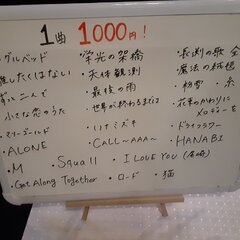 1曲 1000円!
グルベッド
栄光の架橋
長渕の歌 全
難したくはない
天体観測
魔法の絨毯
ずっと二人で
最後の雨
粉雪・糸
小さな恋のうた
世界が終わるまでは
花束のかわりに
メロディーを
マリーゴールド
ハナミズキ
ドライフラワー
ALONE
CALL~AAA~
HANABI
M
Squall
I LOVE YOU (尾崎)
Get Along Together
ロード
猫